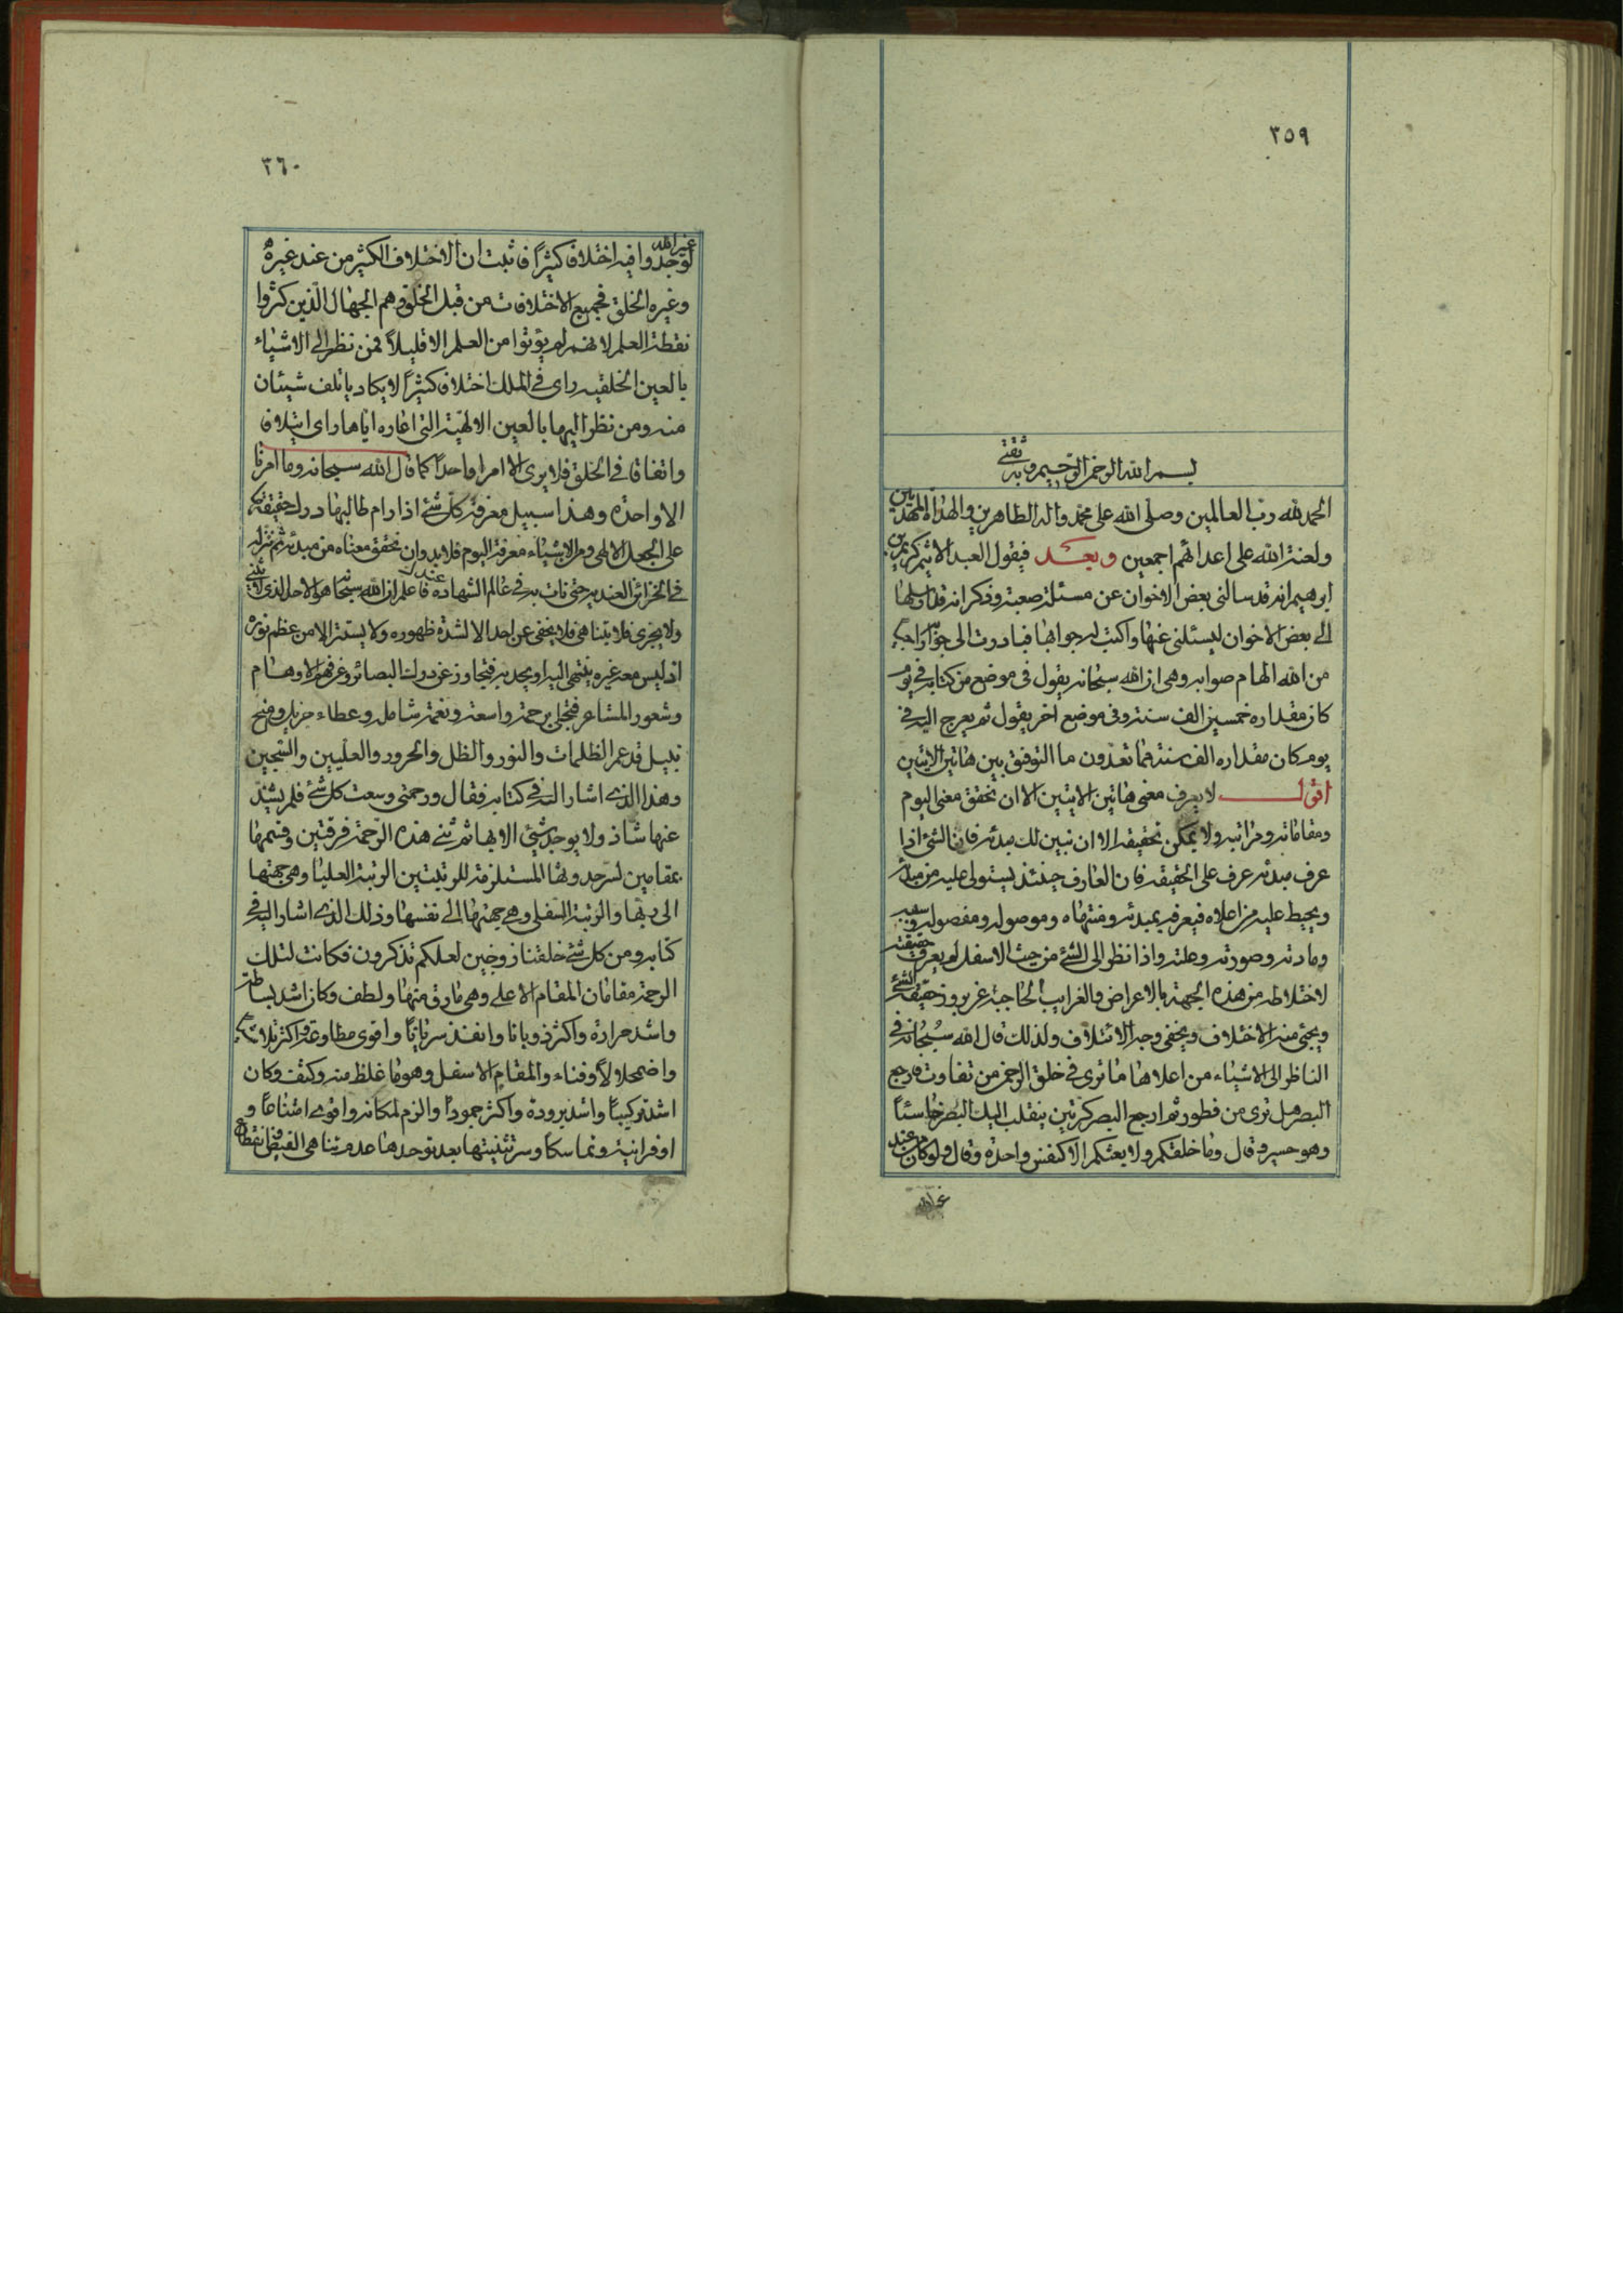 ٣٥٩
بسم الله الرحمن الرحيم وبه ثقتي
الحمد لله رب العالمين وصلى الله على محمد واله الطاهرين والهداة المهديين
ولعنة الله على اعدائهم اجمعين وبعد فيقول العبد الاثيم كريم بن
ابرهيم انه قد سالنى بعض الاخوان عن مسئلة صعبة وذكر انه قد ارسلها
الى بعض الاخوان ليسئلنى عنها واكتب له جوابها فبادرت الى جوابه راجيا
من الله الهام صوابه وهى ان الله سبحانه يقول فى موضع من كتابه فى يوم
كان مقداره خمسين الف سنة وفى موضع اخر يقول ثم يعرج اليه فى
يوم كان مقداره الف سنة مما تعدون ما التوفق بين هاتين الايتين
اقول لا يعرف معنى هاتين الايتين الا ان نحقق معنى اليوم
ومقاماته ومراتبه ولا يمكن تحقيقه الا ان نبين لك مبدئه فان الشئ اذا
عرف مبدئه عرف على الحقيقة فان العارف حينئذ يستولى عليه من مبدئه
ويحيط عليه من اعلاه فيعرفه بمبدئه ومنتهاه وموصوله ومفصوله وسببه
ومادته وصورته وعلته واذا نظر الى الشئ من حيث الاسفل لم يعرف حقيقته
لاختلاطه من هذه الجهة بالاعراض والغرايب الحاجبة عن بروز حقيقة الشئ
ويجئ منه الاختلاف ويخفى وجه الائتلاف ولذلك قال الله سبحانه فى
الناظر الى الاشياء من اعلاها ما ترى فى خلق الرحمن من تفاوت فارجع
البصر هل ترى من فطور ثم ارجع البصر كرتين ينقلب اليك البصر خاسئاً
وهو حسير وقال وما خلقكم ولا بعثكم الا كنفس واحدة وقال ولو كان من عند
غير الله
٣٦٠
غير الله لوجدوا فيه اختلافا كثيراً فاثبت ان الاختلاف الكثير من عند غيره
وغيره الخلق فجميع الاختلافات من قبل الخلق وهم الجهال الذين كثروا
نقطة العلم لانهم لم يؤتوا من العلم الا قليلاً فمن نظر الى الاشياء
بالعين الخلقيه راى فى الملك اختلافا كثيراً لا يكاد ياتلف شيئان
منه ومن نظر اليها بالعين الالهية التى اعاره اياها راى ايتلافا
واتفاقا فى الخلق فلا يرى الا امرا واحداً كما قال الله سبحانه وما امرنا
الا واحدة وهذا سبيل معرفة كل شئ اذا رام طالبها درك حقيقته
على الجعل الالهى ومن الاشياء معرفة اليوم فلابد وان نحقق معناه من مبدئه ثم ننزله
فى الخزائن العنديه حتى نات به فى عالم الشهادة فاعلم ان الله سبحانه هو الاحد الذى لا يثنى
ولا يجزى فلا يتناهى فلا يخفى عن احد الا لشدة ظهوره ولا يستتر الا من عظم نوره
اذ ليس معه غيره ينتهى اليه او يحد به فتجاوز عن درك البصائر وعن فهم الاوهام
وشعور المشاعر فتجلى برحمة واسعة ونعمة شاملة وعطاء جزيل ومنح
نبيل قد عم الظلمات والنور والظل والحرور والعليين والسجين
وهذا الذى اشار اليه فى كتابه فقال ورحمتى وسعت كل شئ فلم يشذ
عنها شاذ ولا يوجد شئ الا بها ثم ثنى هذه الرحمة فرقتين وقسمها
بمقامين لسر حدوثها المستلزمة للرتبتين الرتبة العليا وهى جهتها
الى ربها والرتبة السفلى وهى جهتها الى نفسها وذلك الذى اشار اليه فى
كتابه ومن كل شئ خلقنا زوجين لعلكم تذكرون فكانت لتلك
الرحمة مقامان المقام الاعلى وهى ما رق منها ولطف وكان اشد بساطة
واشد حرارة واكثر ذوبانا وانفذ سرياناً واقوى مطاوعة واكثر تلاشياً
واضمحلالاً وفناء والمقام الاسفل وهو ما غلظ منه وكثف وكان
اشد تركيباً واشد برودة واكثر جموداً والزم لمكانه واقوى امتناعاً و
اوفر انية وتماسكا وسر تثنيتها بعد توحدها عدم تناهى الفيض وانقطاع